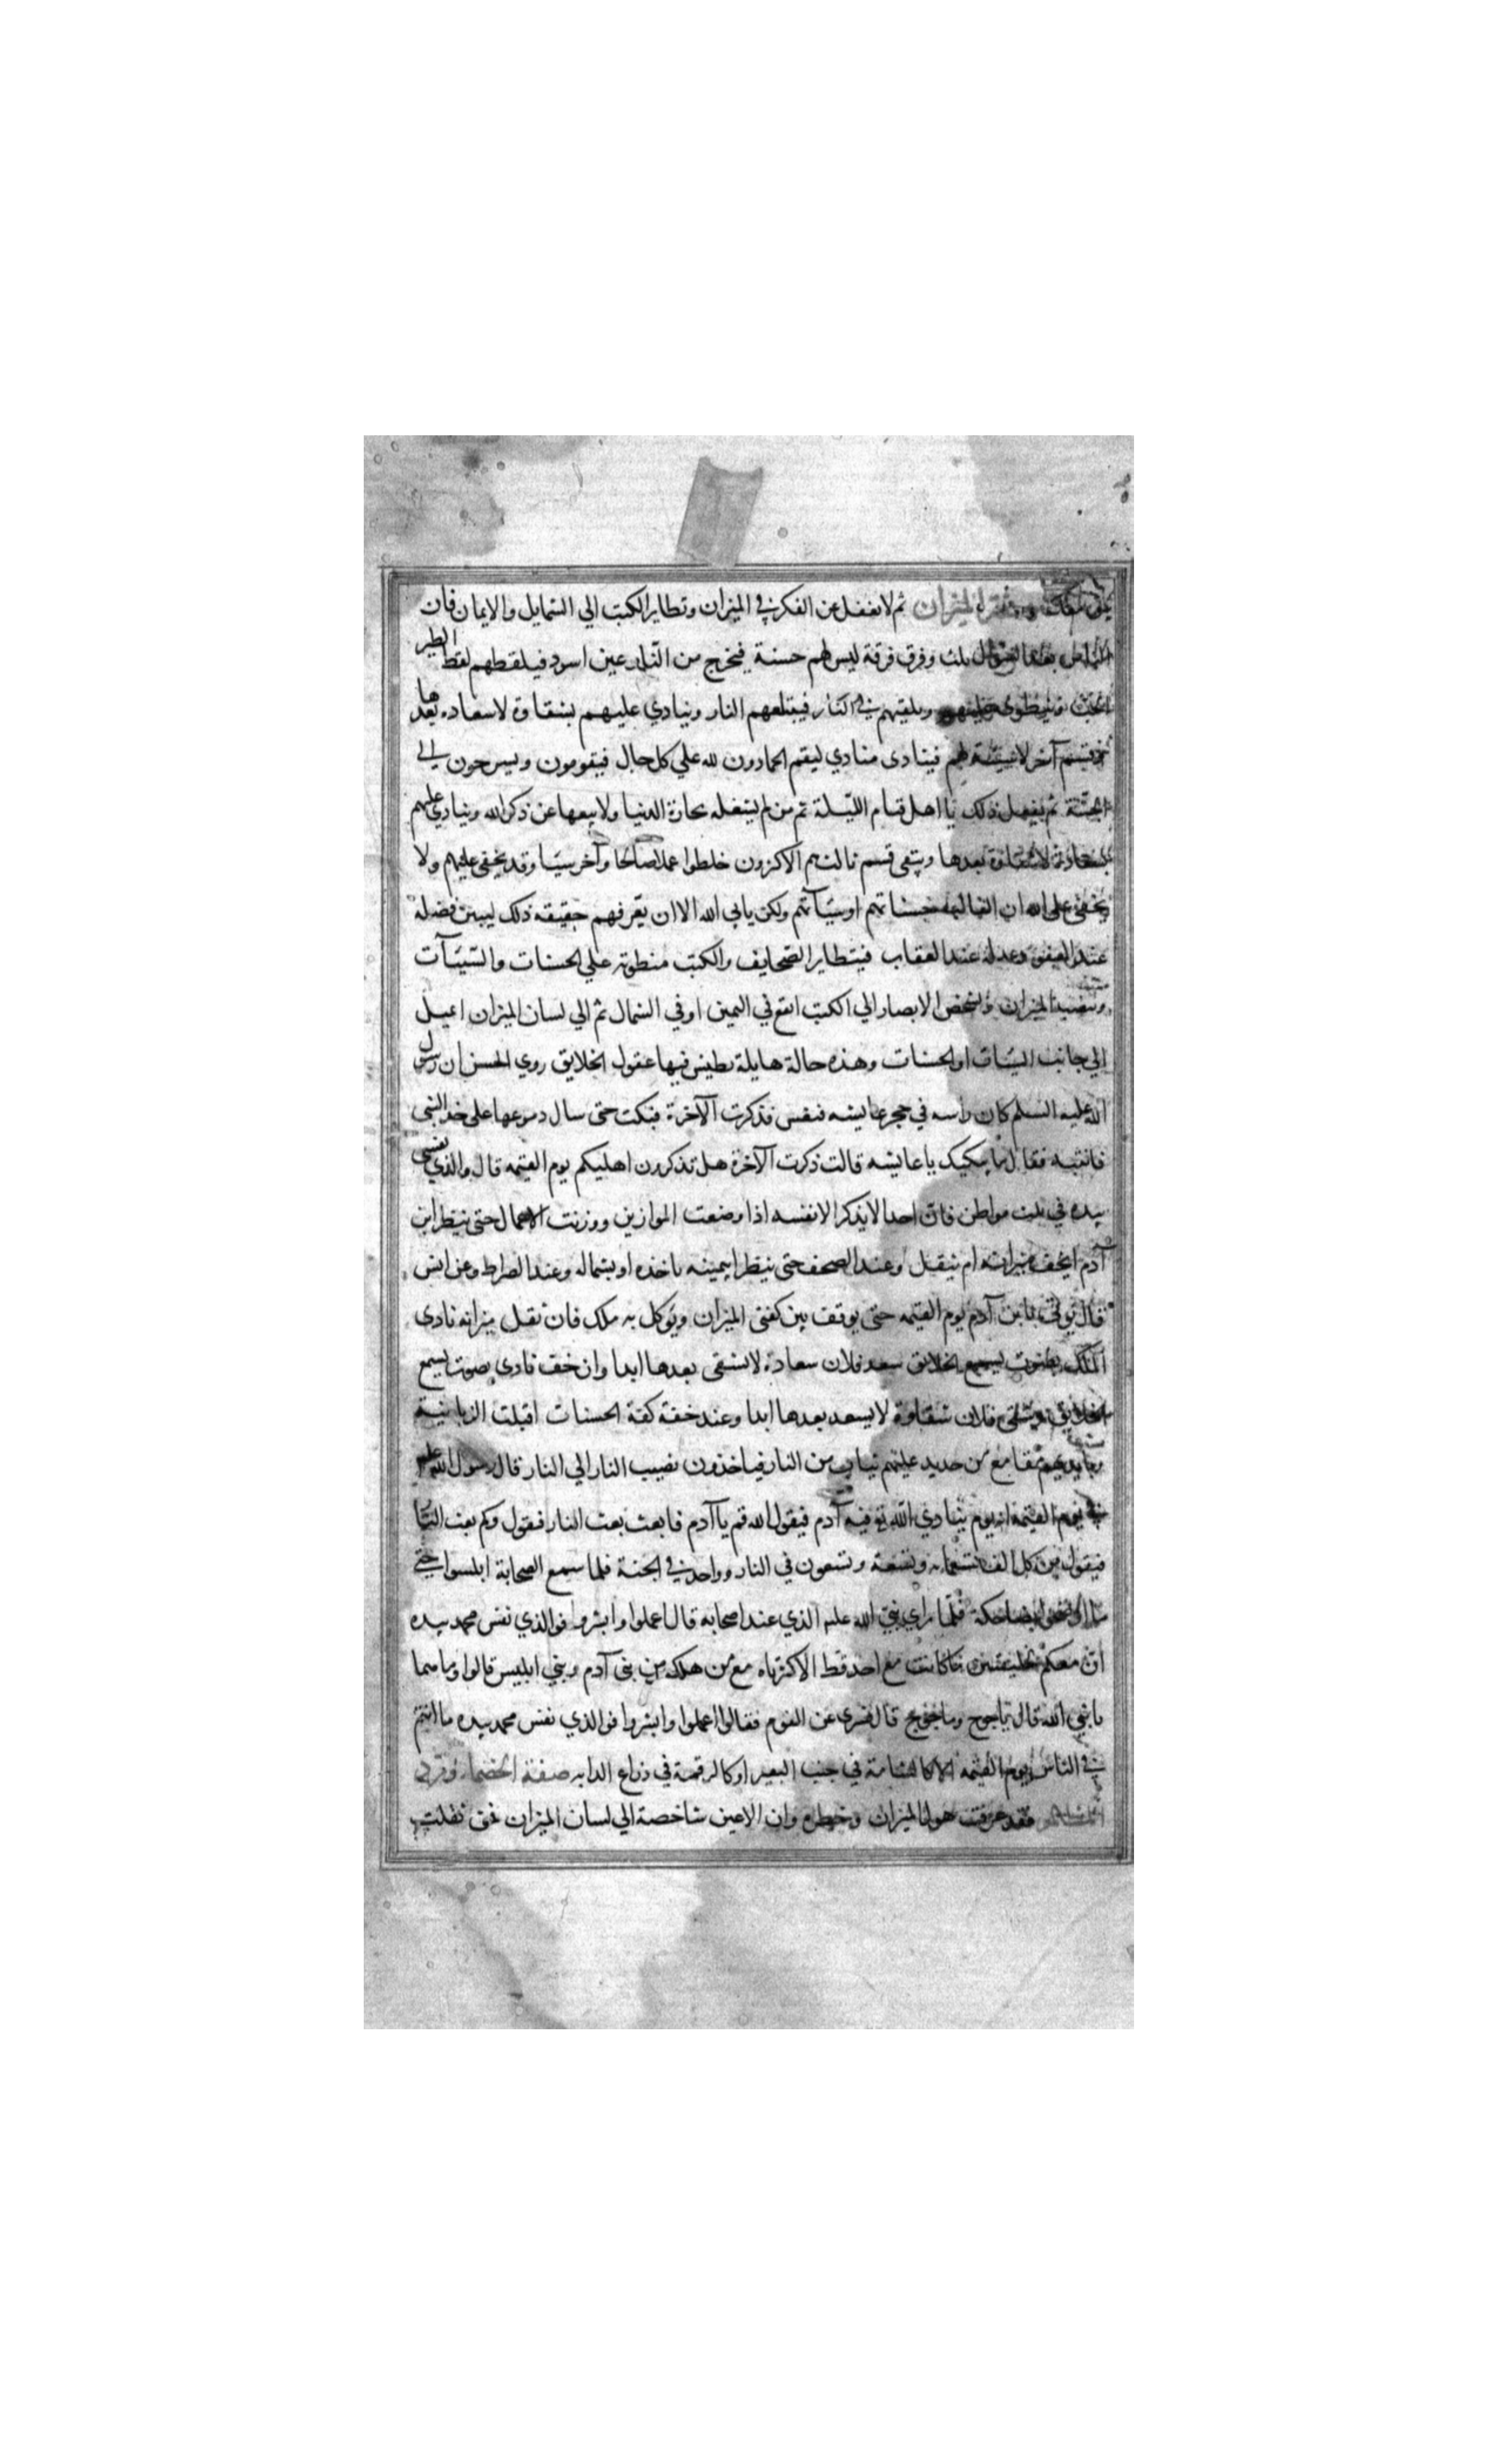 صفة الميزان ثم لا تغفل عن الفكر في الميزان وتطاير الكتب الي الشمايل والايمان فان
الناس بعد السوال ثلث فرق فرقة ليس لهم حسنة فيخرج من النار عين اسود فيلقطهم لقط الطير
الحب وينطوي عليهم ويلقيهم في النار فيبتلعهم النار وينادي عليهم بشقاوة لا سعادة بعدها
وقسم آخر لا سيئة لهم فينادى منادي ليقم الحمادون لله علي كل حال فيقومون ويسرحون الي
الجنة ثم يفعل ذلك باهل قيام الليلة ثم من لم يشغله تجارة الدنيا ولا بيعها عن ذكر الله وينادي عليهم
بسعادة لا شقاوة بعدها ويبقى قسم ثالث هم الاكثرون خلطوا عملا صالحا وآخر سيئا وقد يخفى عليهم ولا
يخفى على الله ان الغالب حسناتهم او سيئآتهم ولكن يابي الله الا ان يعرفهم حقيقه ذلك ليبين فضله
عند العفو وعدله عند العقاب فيتطاير الصحايف والكتب منطوية علي الحسنات والسيئآت
وينصب الميزان وتشخص الابصار الي الكتب اتقع في اليمين او في الشمال ثم الي لسان الميزان ايميل
الي جانب السيئات او الحسنات وهذه حالة هايلة تطيش فيها عقول الخلايق روي الحسن ان رسول
الله عليه السلم كان راسه في حجر عايشه فنعس فذكرت الآخرة فبكت حتى سال دموعها على خد النبي
فانتبه فقال ما يبكيك يا عايشه قالت ذكرت الآخرة هل تذكرون اهليكم يوم القيمه قال والذي نفسي
بيده في ثلث مواطن فان احدا لا يذكر الا نفسه اذا وضعت الموازين ووزنت الاعمال حتى ينظر ابن
آدم ايخف ميزانه ام يثقل وعند الصحف حتى ينظر ابيمينه ياخذه او بشماله وعند الصراط وعن انس
قال يؤتى بابن آدم يوم القيمه حتى يوقف بين كفتي الميزان ويوكل به ملك فان ثقل ميزانه نادى
الملك بصوت يسمع الخلايق سعد فلان سعادة لا يشقى بعدها ابدا وان خف نادى بصوت يسمع
الخلايق شقى فلان شقاوة لا يسعد بعدها ابدا وعند خفة كفة الحسنات اقبلت الزبانية
وبايديهم مقامع من حديد عليهم ثياب من النار فياخذون نصيب النار الي النار قال رسول الله عليه
في يوم القيمه انه يوم ينادي الله فيه آدم فيقول الله قم يا آدم فابعث بعث النار فيقول وكم بعث النار
فيقول من كل الف تسعمايه وتسعة وتسعون في النار وواحد في الجنة فلما سمع الصحابة ابلسوا حتى
ما اوضحوا بضاحكة فلما راي نبي الله عليه الذي عند اصحابه قال اعملوا وابشروا فوالذي نفس محمد بيده
ان معكم لخليقتين ما كانتا مع احد قط الا كثرتاه مع من هلك من بني آدم وبني ابليس قالوا وما هما
يا نبي الله قال ياجوج وماجوج قال فسري عن القوم فقال اعملوا وابشروا فوالذي نفس محمد بيده ما انتم
في الناس يوم القيمه الا كالشامة في جنب البعير او كالرقمة في ذراع الدابه صفة الخصماء ورد
المظالم فقد عرفت هول الميزان وخطره وان الاعين شاخصة الي لسان الميزان فمن ثقلت